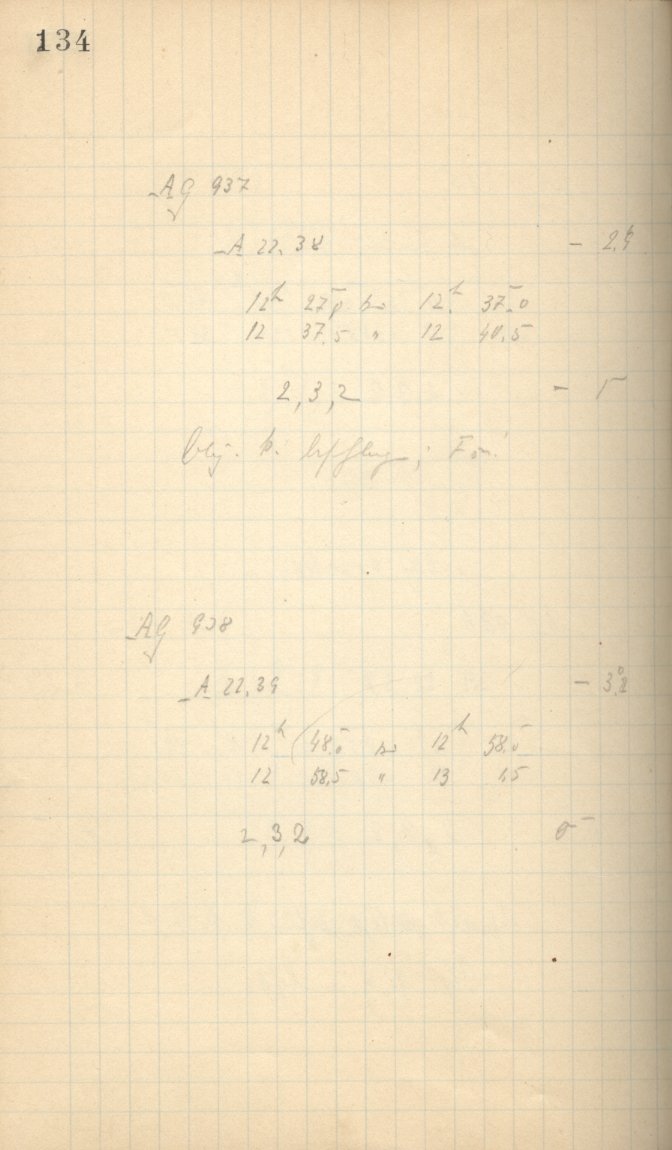 134
AG 937
A 22.38 - 2.9
12h 27.0 bis 12h 37.0
12 37.5 " 12 40.5
2, 3, 2
Obj. b.
AG 938
A 22.39 - 3.2
12h 48.0 bis 12h 58.0
12 58.5 " 13 1.5
2, 3, 2